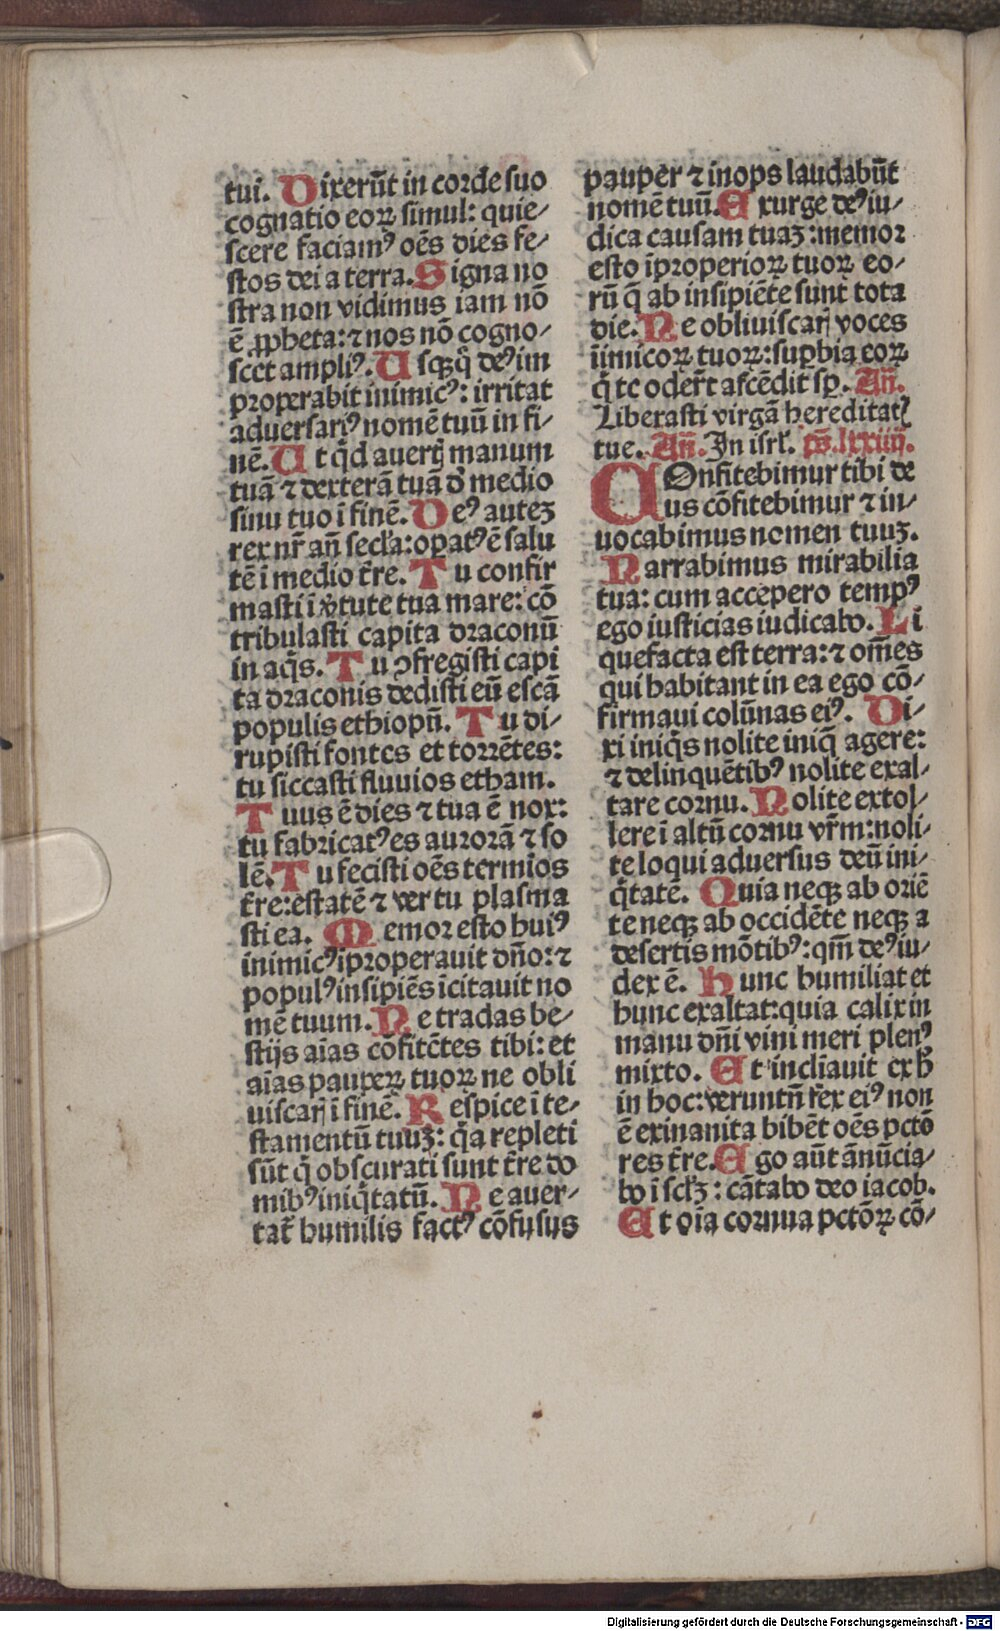 tui. Dixerūt in corde suo
cognatio eoꝝ simul: quie⸗
scere faciamꝰ oēs dies fe⸗
stos dei a terra. Signa no
stra non vidimus iam nō
ē ꝓpheta: ⁊ nos nō cogno⸗
scet ampliꝰ. Usq̃q̄ deꝰ im
properabit inimicꝰ: irritat
aduersariꝰ nomē tuū in fi⸗
nē. Ut qͥd auertꝭ manum
tuā ⁊ dexterā tuā d̕ medio
sinu tuo ī finē. Deꝰ autez
rex nr̄ añ secl̕a: opatꝰ ē salu
tē ī medio t̄re. Tu confir
masti ī v̕tute tua mare: cō
tribulasti capita draconū
in aqͥs. Tu ꝯfregisti capi
ta draconis dedisti eū escā
populis ethiopū. Tu di⸗
rupisti fontes et torrētes:
tu siccasti fluuios etham.
Tuus ē dies ⁊ tua ē nox:
tu fabricatꝰ es aurorā ⁊ so
lē. Tu fecisti oēs termīos
t̄re: estatē ⁊ ver tu plasma
sti ea. Memor esto huiꝰ
inimicꝰ īproperauit dño: ⁊
populꝰ insipiēs īcitauit no
mē tuum. Ne tradas be⸗
stijs aīas cōfitētes tibi: et
aīas pauperꝝ tuoꝝ ne obli
uiscarꝭ ī finē. Respice ī te⸗
stamentū tuuꝫ: qͥa repleti
sūt q̄ obscurati sunt t̄re do
mibꝰ iniqͥtatū. Ne auer⸗
tat̄ humilis factꝰ cōfusus
pauper ⁊ inops laudabūt
nomē tuū. Exurge deꝰ iu⸗
dica causam tuaꝫ: memor
esto īproperioꝝ tuoꝝ eo⸗
rū q̄ ab insipiēte sunt tota
die. Ne obliuiscarꝭ voces
īimicoꝝ tuoꝝ: suꝑbia eoꝝ
q̄ te oder̄t ascēdit sꝑ. Añ.
Liberasti virgā hereditatꝭ
tue. Añ. In isrl̕. ps̄. lxxiiij.
COnfitebimur tibi de
us cōfitebimur ⁊ in⸗
uocabimus nomen tuuꝫ.
Narrabimus mirabilia
tua: cum accepero tempꝰ
ego iusticias iudicabo. Li
quefacta est terra: ⁊ om̄es
qui habitant in ea ego cō⸗
firmaui colūnas eiꝰ. Di⸗
xi iniqͥs nolite iniq̄ agere:
⁊ delinquētibꝰ nolite exal⸗
tare cornu. Nolite extol⸗
lere ī altū cornu vr̄m: noli⸗
te loqui aduersus deū ini⸗
qͥtatē. Quia neqꝫ ab oriē
te neqꝫ ab occidēte neqꝫ a
desertis mōtibꝰ: qm̄ deꝰ iu⸗
dex ē. Hunc humiliat et
hunc exaltat: quia calix in
manu dñi vini meri plenꝰ
mixto. Et inclīauit ex h̕
in hoc: veruntñ fex eiꝰ non
ē exinanita bibēt oēs pctō
res t̄re. Ego aūt ānūcia⸗
bo ī scl̕ꝫ: cātabo deo iacob.
Et oīa cornua pctōꝝ cō⸗
Digitalisierung gefördert durch die Deutsche Forschungsgemeinschaft - DFG